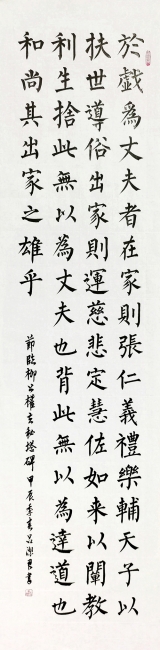 於戲為丈夫者在家則張仁義禮樂輔天子以
扶世導俗出家則運慈悲定慧佐如来以闡教
利生捨此無以為丈夫也背此無以為達道也
和尚其出家之雄乎
節臨柳公權玄秘塔碑甲辰季春吕潔君書